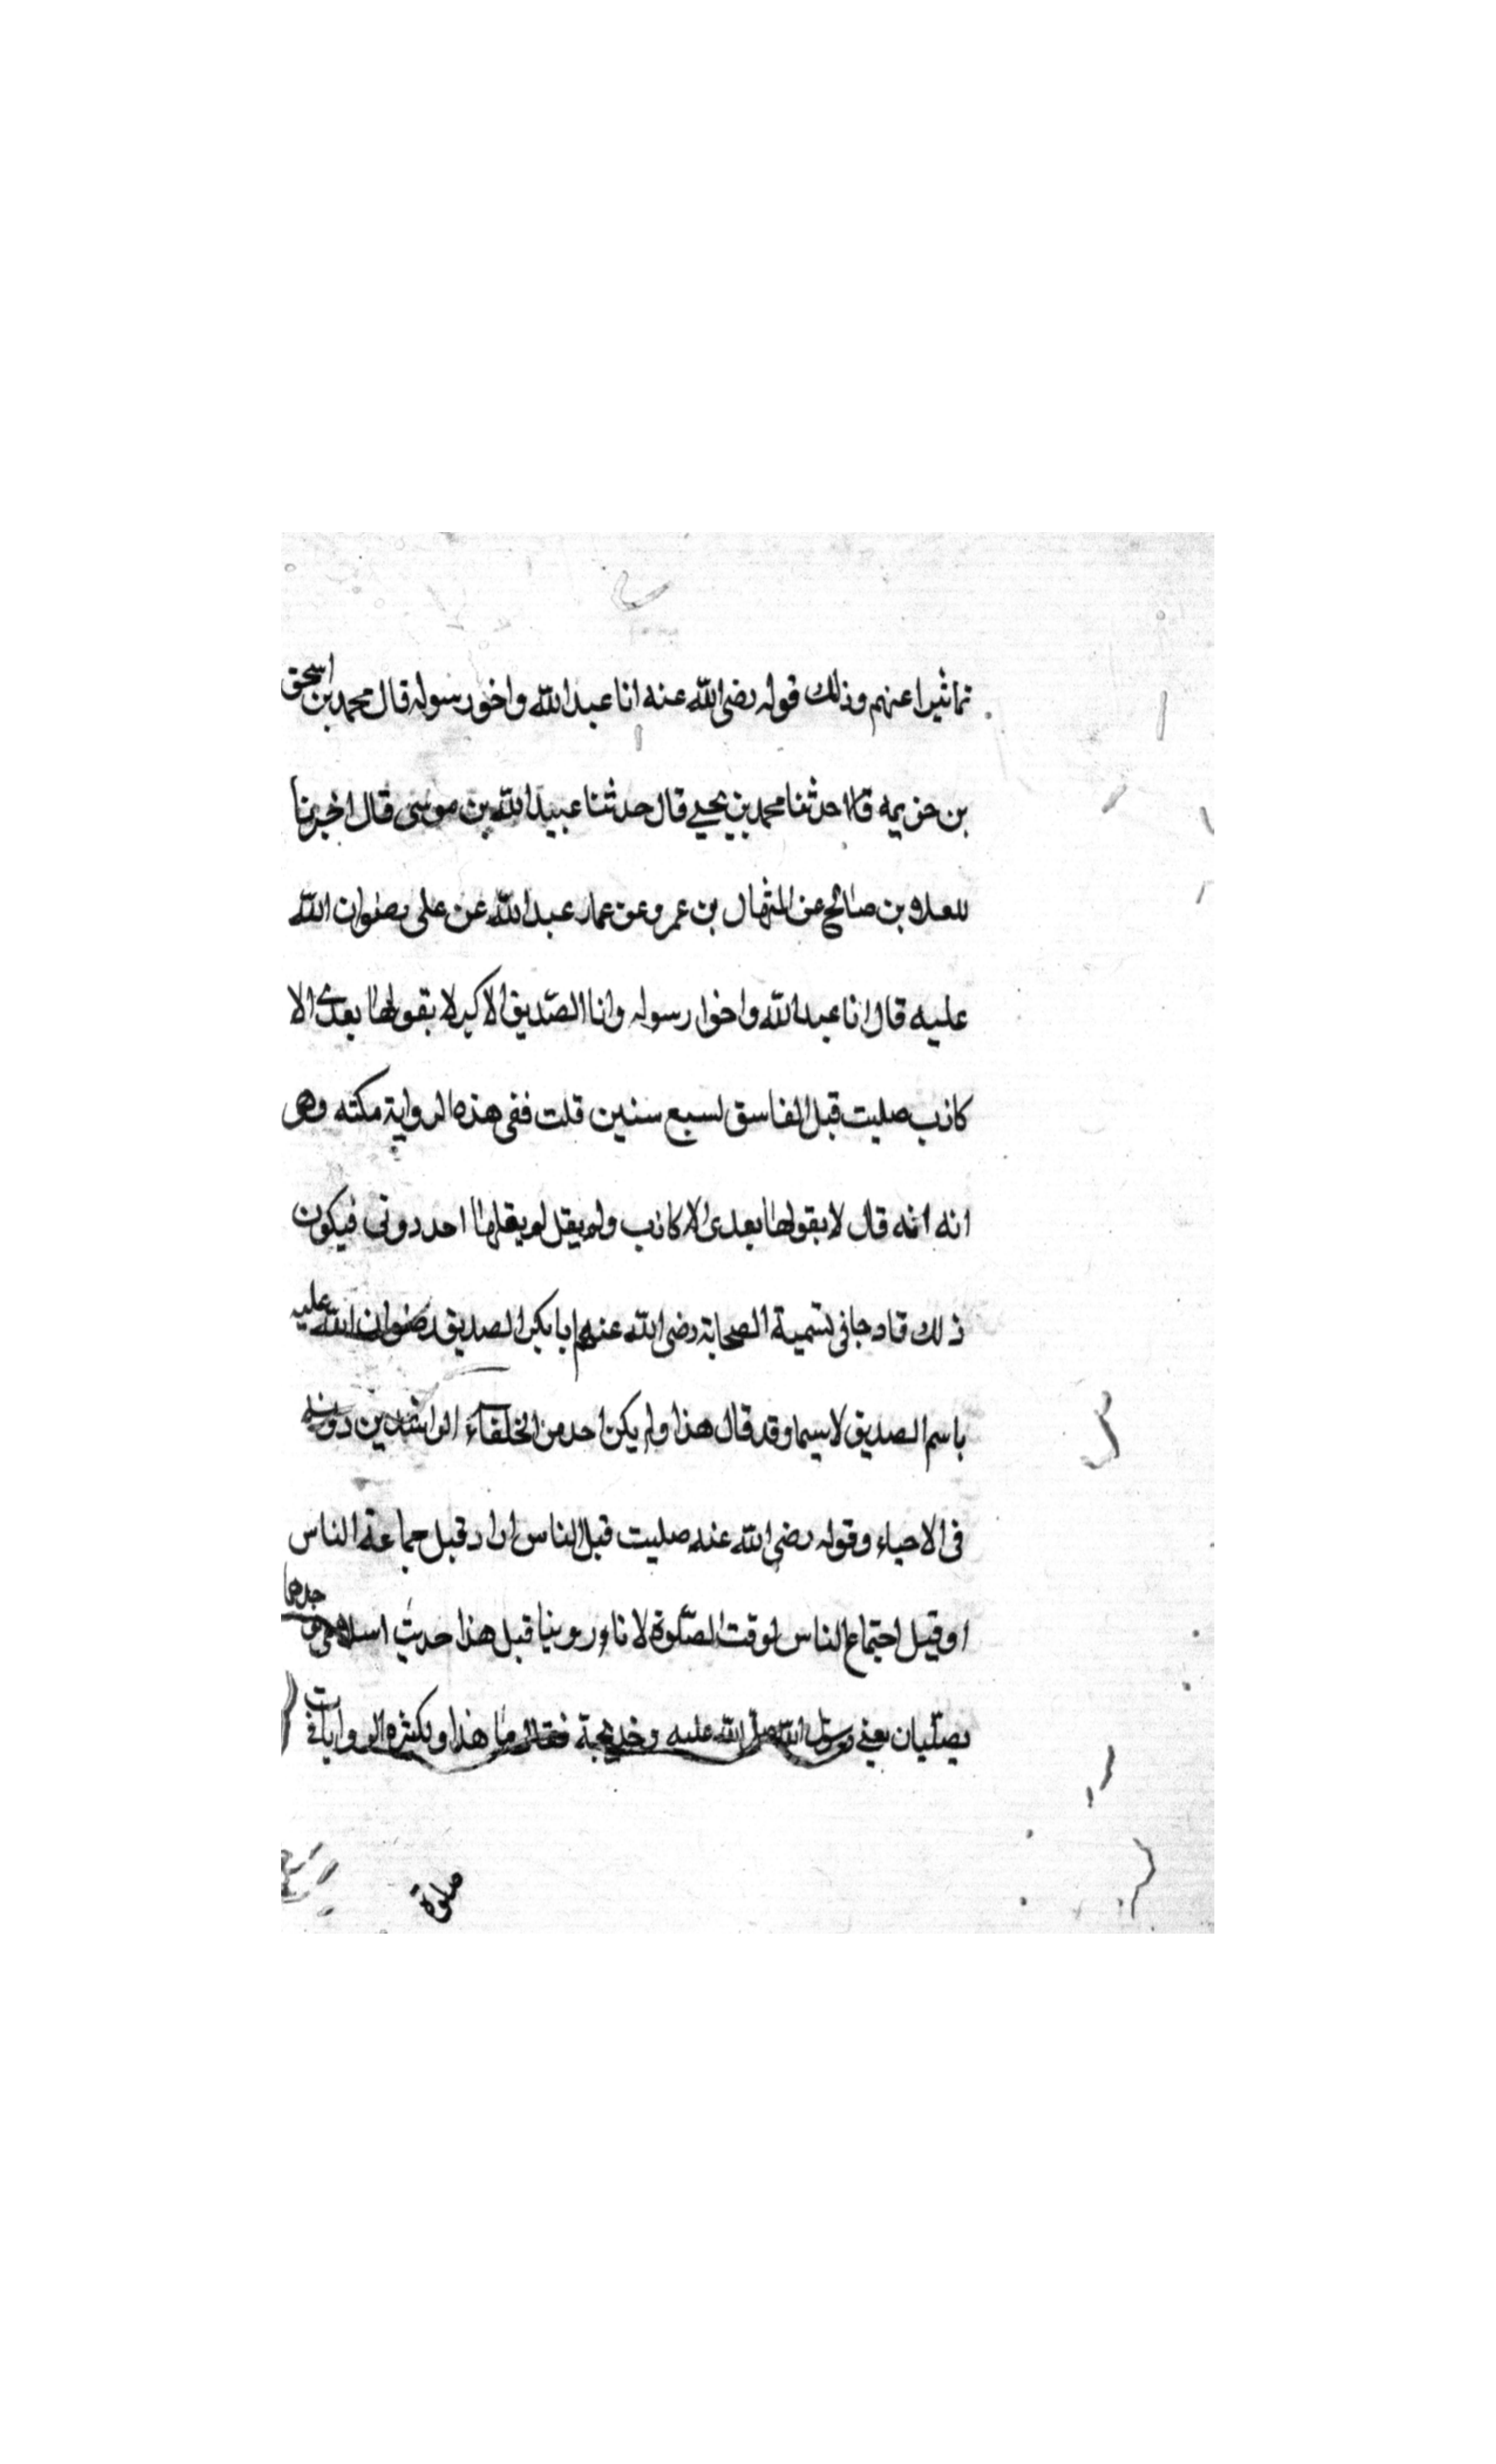 تماثيرا عنهم وذلك قوله رضى الله عنه انا عبد الله واخو رسوله قال محمد بن اسحق
بن خزيمه قالا حدثنا محمد بن يحيى قال حدثنا عبيد الله بن موسى قال اخبرنا
للعلاء بن صالح عن المنهال بن عمرو عن عمار عبد الله عن على رضوان الله
عليه قال انا عبد الله واخوا رسوله وانا الصديق الاكبر لا يقولها بعدى الا
كاذب صليت قبل الفاسق لسبع سنين قلت ففى هذه الرواية مكته وهى
انه انه قال لا يقولها بعدى الا كاذب ولم يقل لم يقلها احد دونى فيكون
ذلك قاد جا فى تسمية الصحابة رضى الله عنهم ابا بكر الصديق رضوان الله عليه
باسم الصديق لا سيما وقد قال هذا ولم يكن احد من الخلفاء الراشدين دونه
فى الاحياء وقوله رضى الله عنه صليت قبل الناس اراد قبل جماعة الناس
او قبل اجتماع الناس لوقت الصلوة لانا وروينا قبل هذا حديث
يصليان يعنى رسول الله صلى الله عليه وخديجة فقال ما هذا وبكثره الروايات فى
صلوة